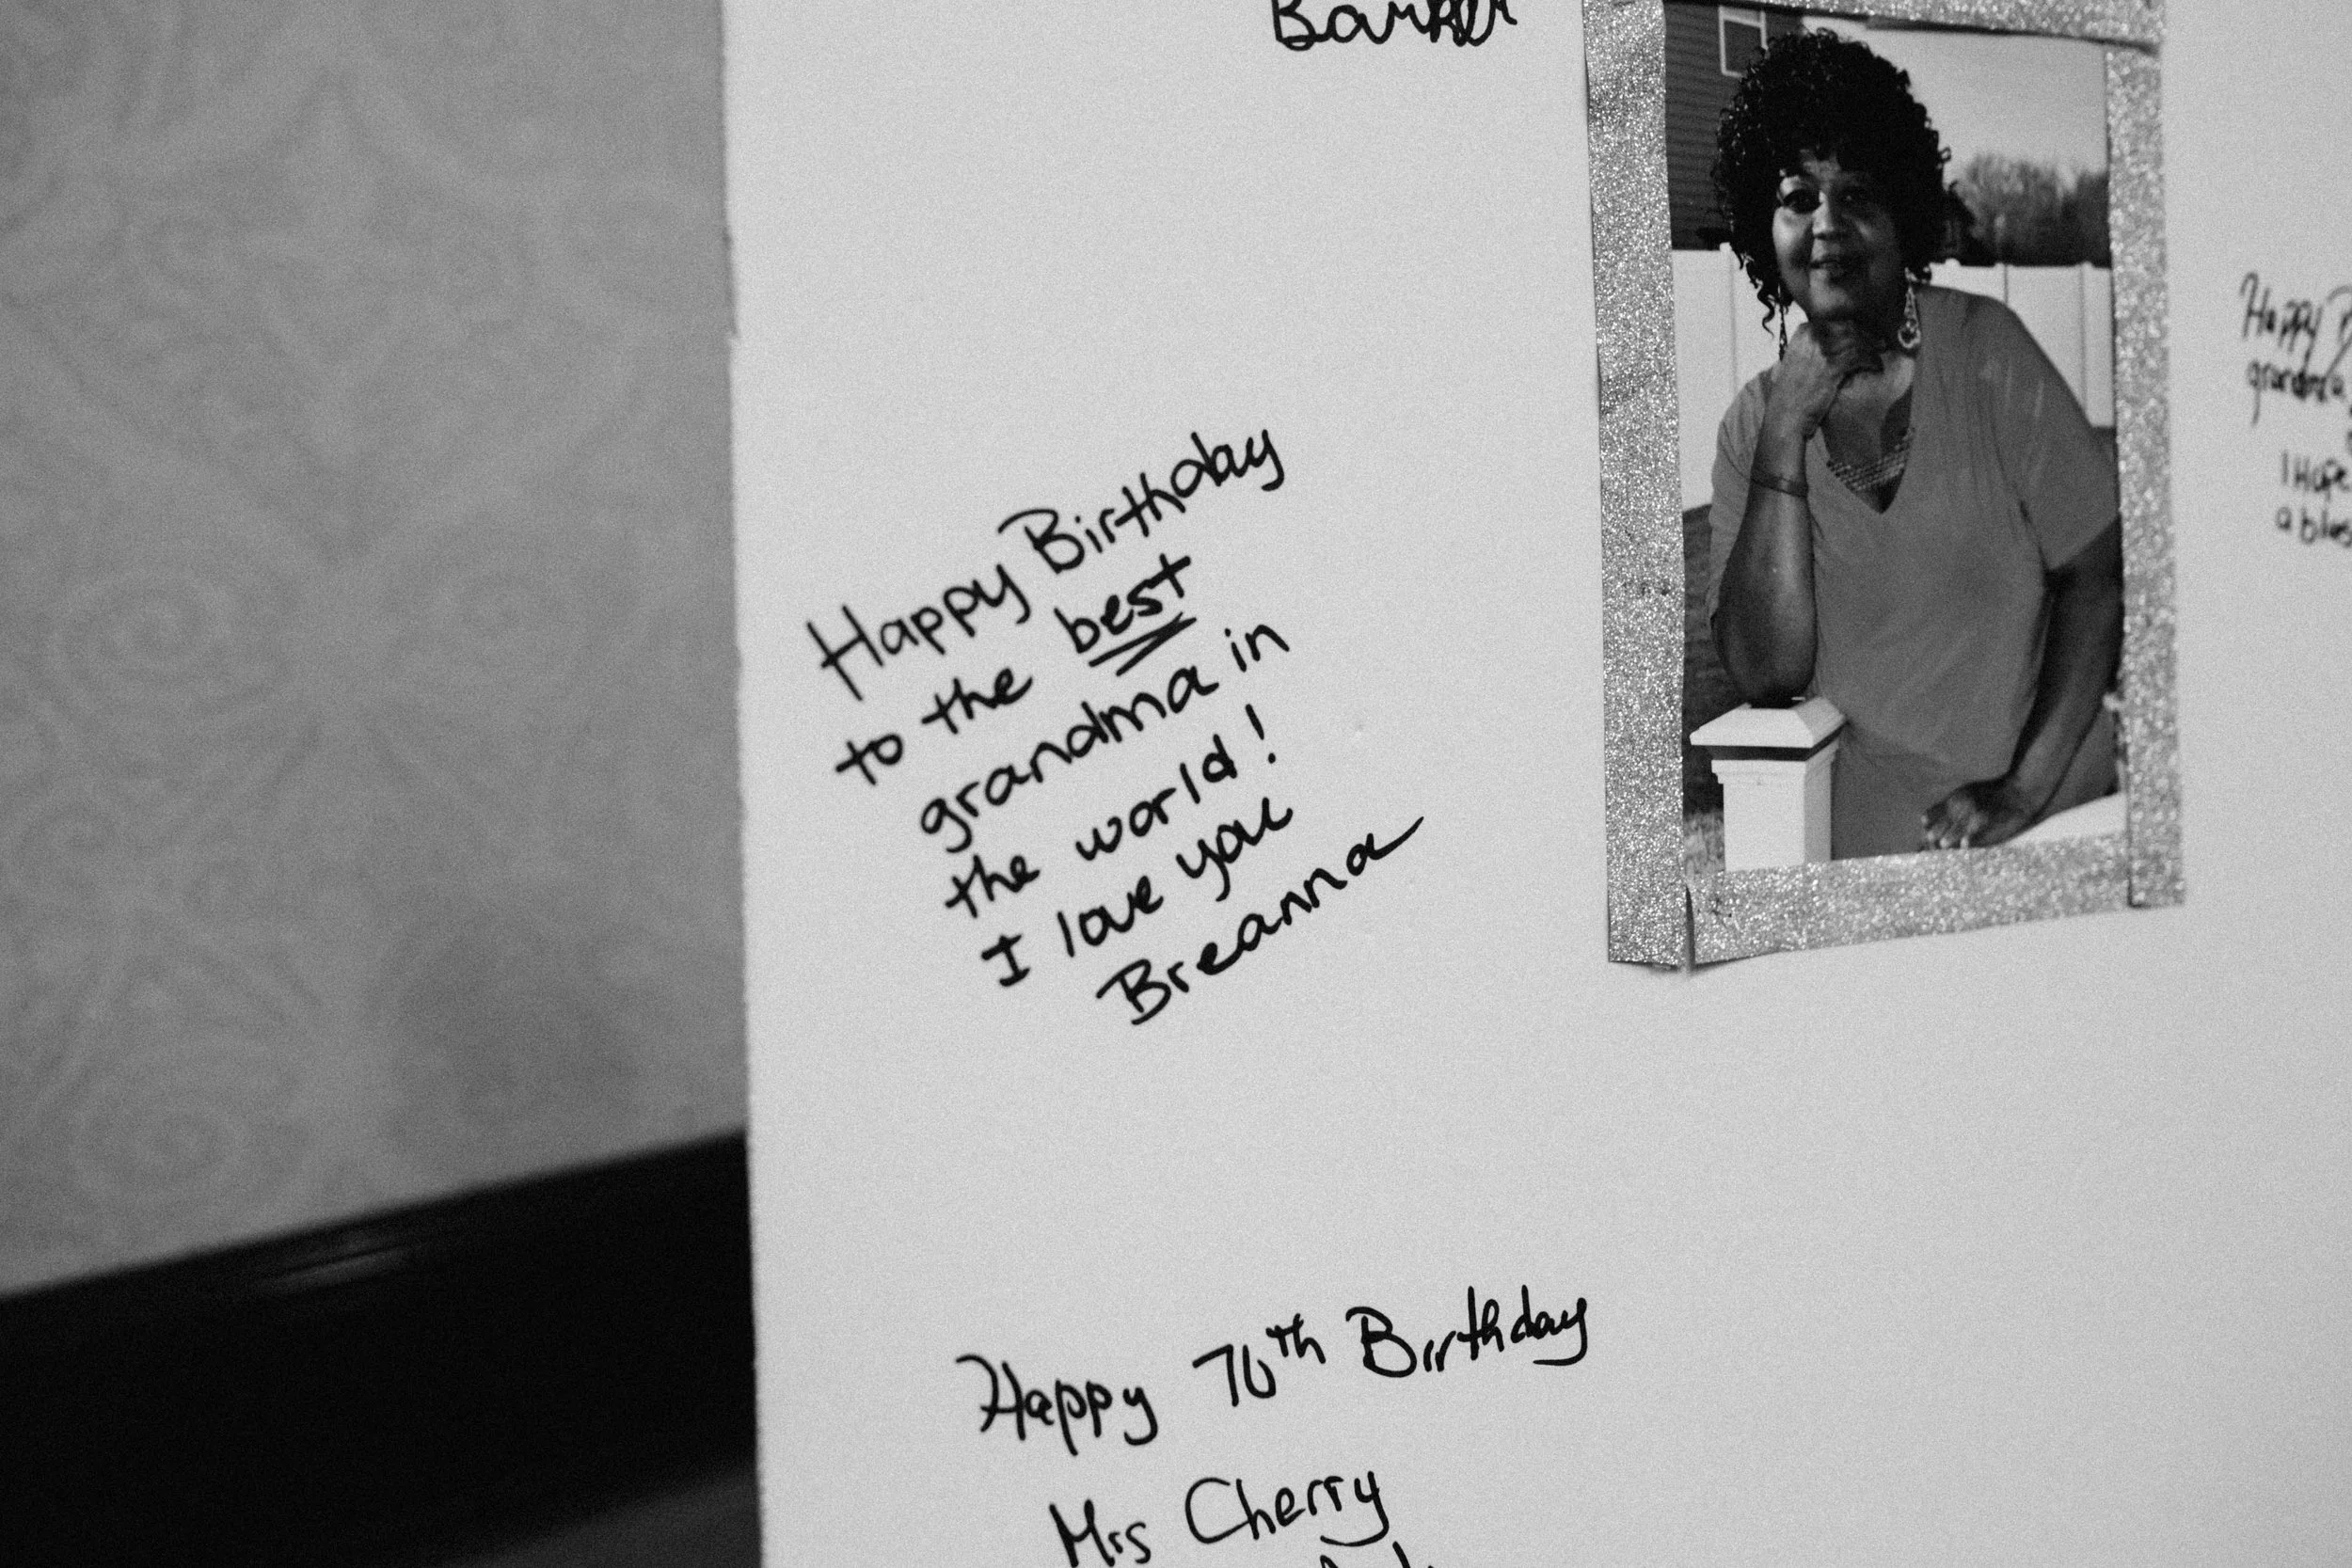 Barker
Happy Birthday
to the best
grandma in
the world!
I love you
Breanna
Happy
grandma
I Hope
Happy 70th Birthday
Mrs Cherry